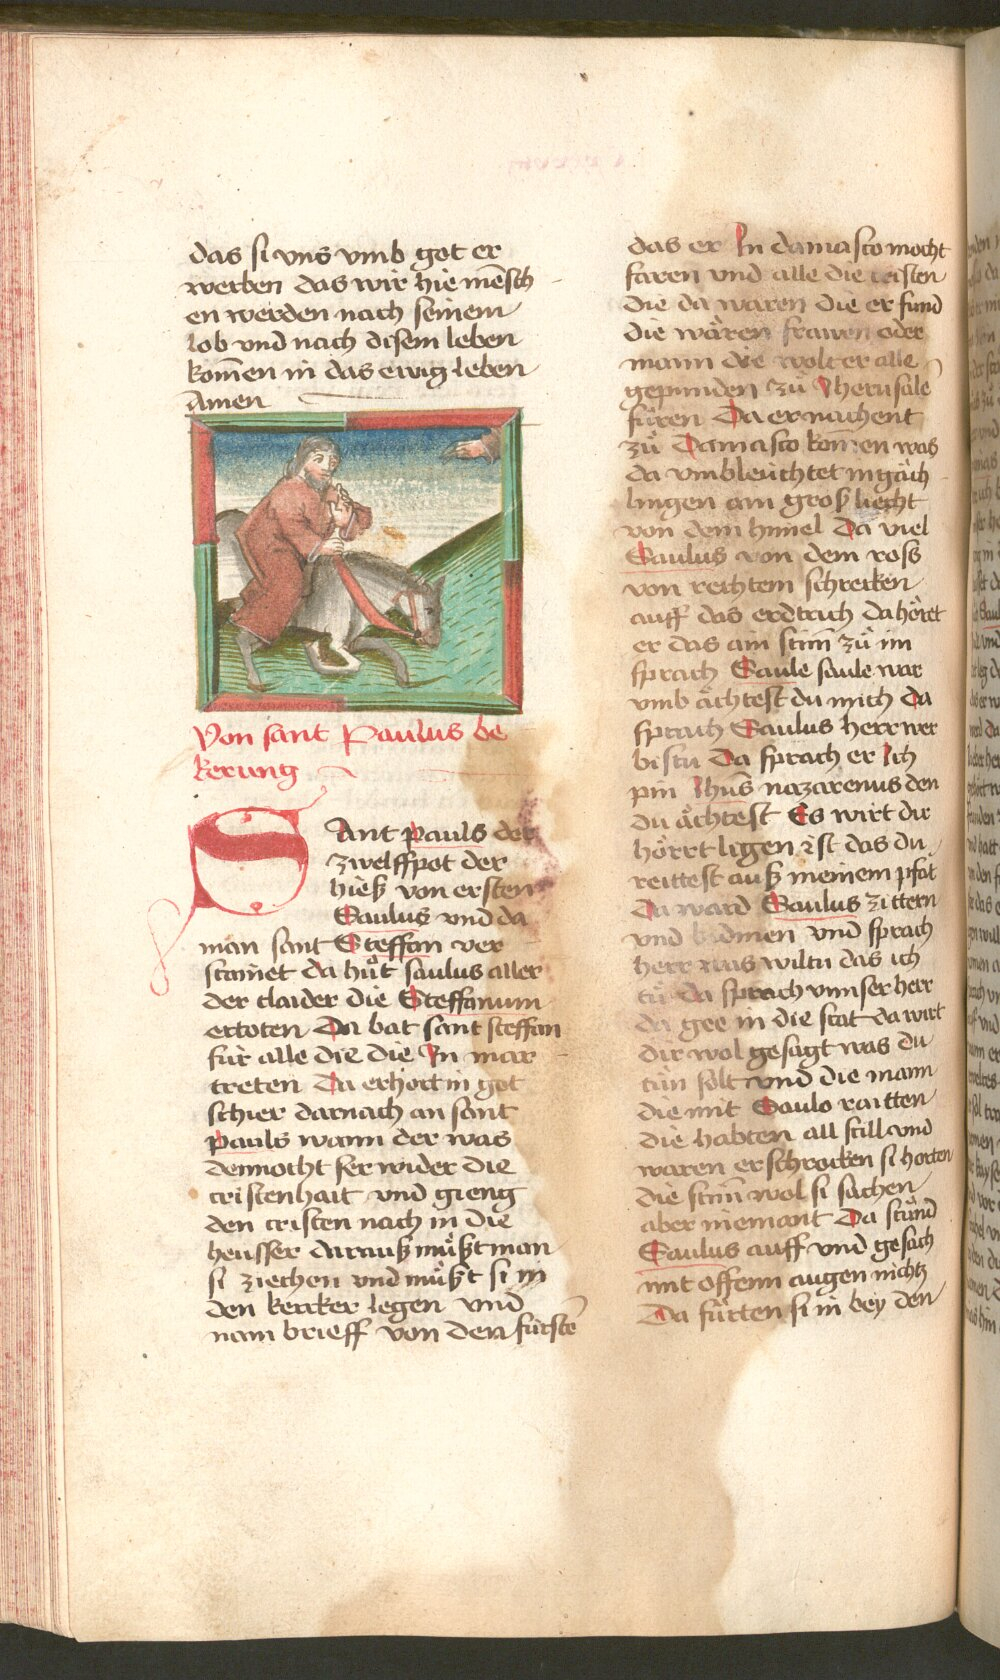 das si uns vmb got er
werben das wir hie mensch
en werden nach seinem
lob vnd nach disem leben
kom̄en in das ewig leben
Amen
Von sant Paulus be
kerung
SAnt pauls der
zwelffpot der
hieß von ersten
Saulus vnd da
man sant Steffan ver
stainet da hu̍t saulus aller
der claider die Steffanum
ertoten Da bat sant steffan
für alle die die In mar
treten Da erhort in got
schier darnach an sant
pauls wann der was
dennocht ser wider die
cristenhait vnd gieng
den cristen nach in die
heusser darauß mu̍ßt man
si ziechen vnd mu̍ßt si in
den kercker legen vnd
nam brieff von den fürstē
das er In damasco mocht
faren vnd alle die cristen
die da waren die er fund
die wären frawen oder
mann die wolt er alle
gepunden zu̍ Jherusalē
füren Da er nachent
zu̍ Damasco kom̄en was
da vmbleüchtet in gäch
lingen ain groß liecht
von dem himel Da viel
Saulus von dem ross
von rechtem schrecken
auff das erdtrich da höret
er das ain stim̄ zu̍ im
sprach Saule saule war
vmb ächtest du mich Da
sprach Saulus herr wer
bistu Da sprach er Ich
pin Jhūs nazarenus den
du ächtest Es wirt dir
hörrt ligen ist das du
reittest auß meinem pfat
Da ward Saulus zittern
vnd bidmen vnd sprach
herr was wiltu das ich
tu̍ Da sprach vnnser herr
da gee in die stat da wirt
dir wol gesagt was du
tu̍n solt vnd die mann
die mit Saulo raitten
die habten all still vnd
waren erschrocken si horten
die stim̄ wol si sachen
aber niemant Da stu̍nd
Saulus auff vnd gesach
mit offenn augen nichtz
Da fürten si in bey den